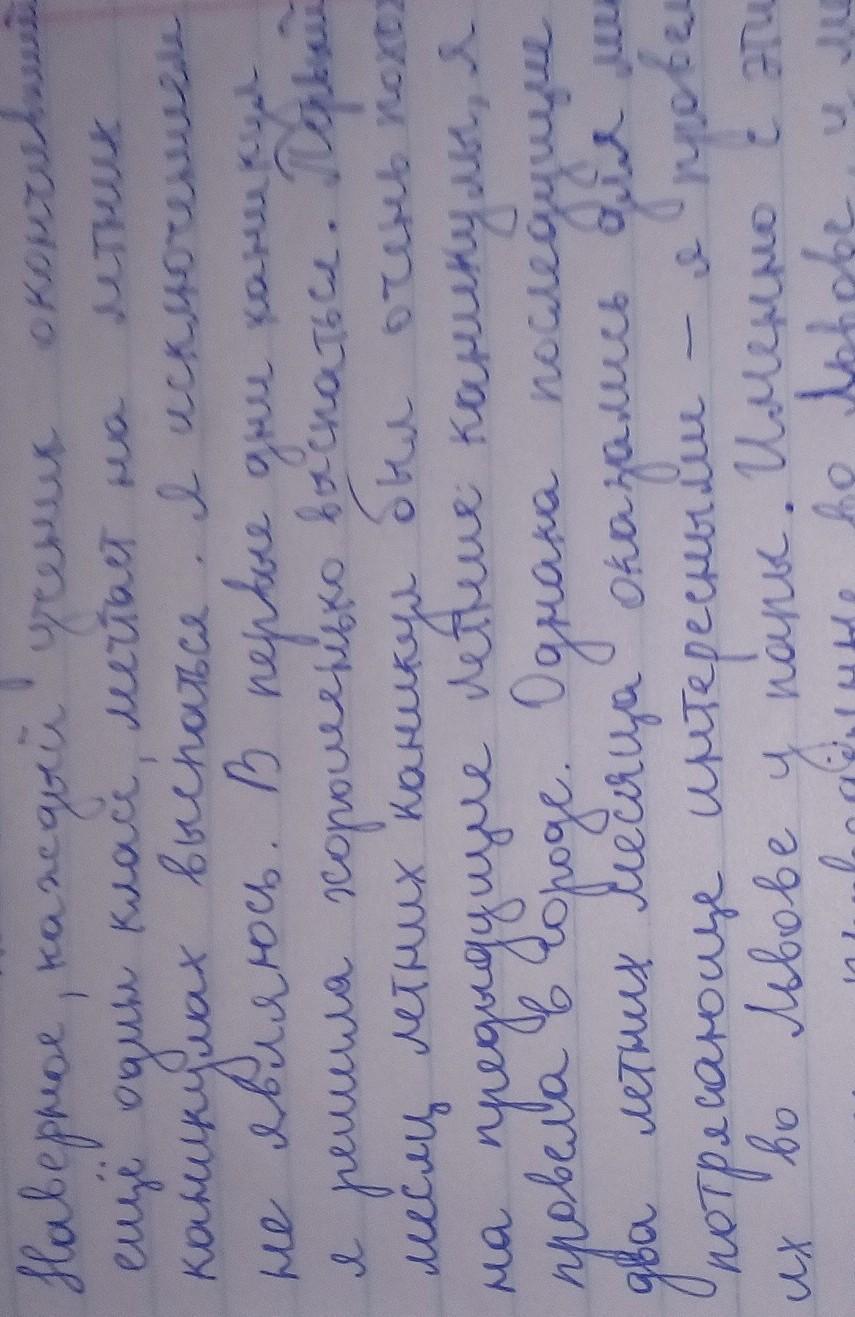 Наверное, каждый ученик окончивший
ещё один класс, мечтает на летних
каникулах выспаться. Я исключением
не являюсь. В первые дни каникул
я решила хорошенько выспаться. Первый
месяц летних каникул был очень похож
на предыдущие летние каникулы, я
провела в городе. Однака последущие
два летних месяца оказались для
потрясающе интересными – я провела
их во Львове у папы. Именно с эти
во Львове, и